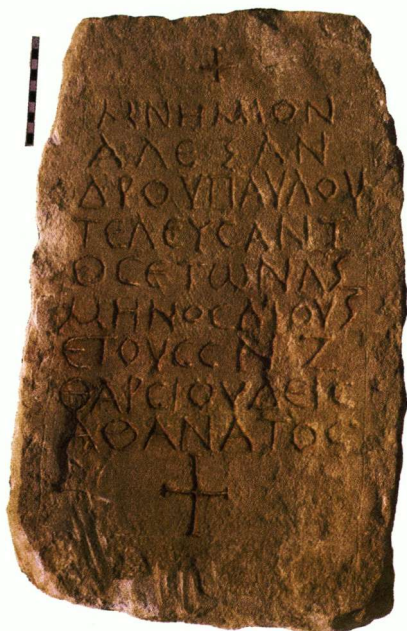 +
ΜΝΗΜΙΟΝ
ΑΛΕΞΑΝ
ΔΡΟΥΠΑΥΛΟΥ
ΤΕΛΕΥϹΑΝΤ
ΟϹΕΤΩΝΛϚ
ΜΗΝΟϹΔΙΟΥϚ
ΕΤΟΥϹϹΝΖ
ΘΑΡϹΙΟΥΔΕΙϹ
ΑΘΑΝΑΤΟϹ
+